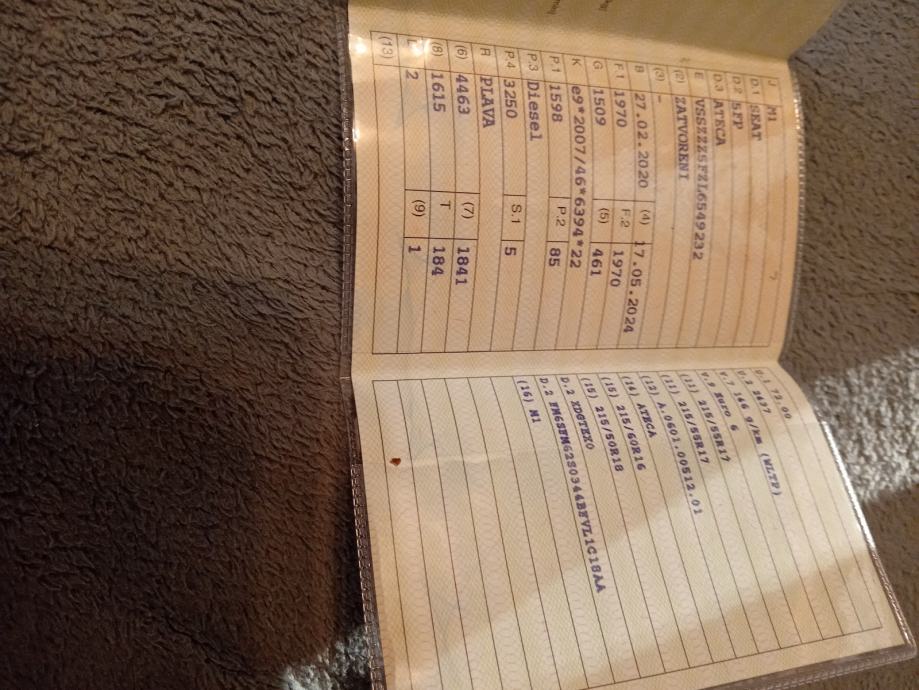 J M1
D.1 SEAT
D.2 5FP
D.3 ATECA
E VSSZZZ5FZL6549232
(2) ZATVORENI
(3) -
B 27.02.2020 (4) 17.05.2024
F.1 1970 F.2 1970
G 1509 (5) 461
K e9*2007/46*6394*22
P.1 1598 P.2 85
P.3 Diesel
P.4 3250 S.1 5
R PLAVA
(6) 4463 (7) 1841
(8) 1615 T 184
L 2 (9) 1
(13)
U.1 72.00
U.2 2437
V.7 146 g/km (WLTP)
V.9 Euro 6
(11) 215/55R17
(11) 215/55R17
(12) A.0601.00512.01
(14) ATECA
(15) 215/60R16
(15) 215/50R18
D.2 XDGTEX0
D.2 FM6SFM62S0344BFVL1G18AA
(16) M1